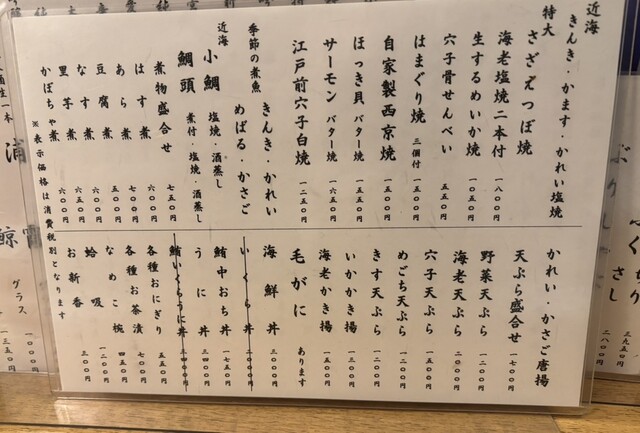 近海 きんき・かます・かれい塩焼
特大 さざえつぼ焼
海老塩焼二本付 一八〇〇円
生するめいか焼 一〇五〇円
穴子骨せんべい 五五〇円
はまぐり焼 三個付 一六五〇円
自家製西京焼 一五〇〇円
ほっき貝バター焼 一五〇〇円
サーモンバター焼 一六五〇円
江戸前穴子白焼 一二五〇円
季節の煮魚 きんき・かれい
めばる・かさご
近海 小鯛 塩焼・酒蒸し
鯛頭 煮付・塩焼・酒蒸し
煮物盛合せ 七五〇円
はす煮 六〇〇円
あら煮 五〇〇円
豆腐煮 五〇〇円
なす煮 六〇〇円
里芋煮 六〇〇円
かぼちゃ煮 六〇〇円
※表示価格は消費税別となります
かれい・かさご唐揚
天ぷら盛合せ 一七〇〇円
野菜天ぷら 一二〇〇円
海老天ぷら 二〇〇〇円
穴子天ぷら 一五〇〇円
めごち天ぷら 一二〇〇円
きす天ぷら 一二〇〇円
いかかき揚 一三〇〇円
海老かき揚 一五〇〇円
毛がに あります
海鮮丼 三〇〇〇円
いくら丼 二〇〇〇円
鮪中おち丼 一七五〇円
うに丼 三四〇〇円
鮪いくらうに丼 三四〇〇円
各種おにぎり 五五〇円
各種お茶漬 七〇〇円
なめこ椀 四五〇円
蛤吸 一二〇〇円
お新香 三〇〇円
グラス